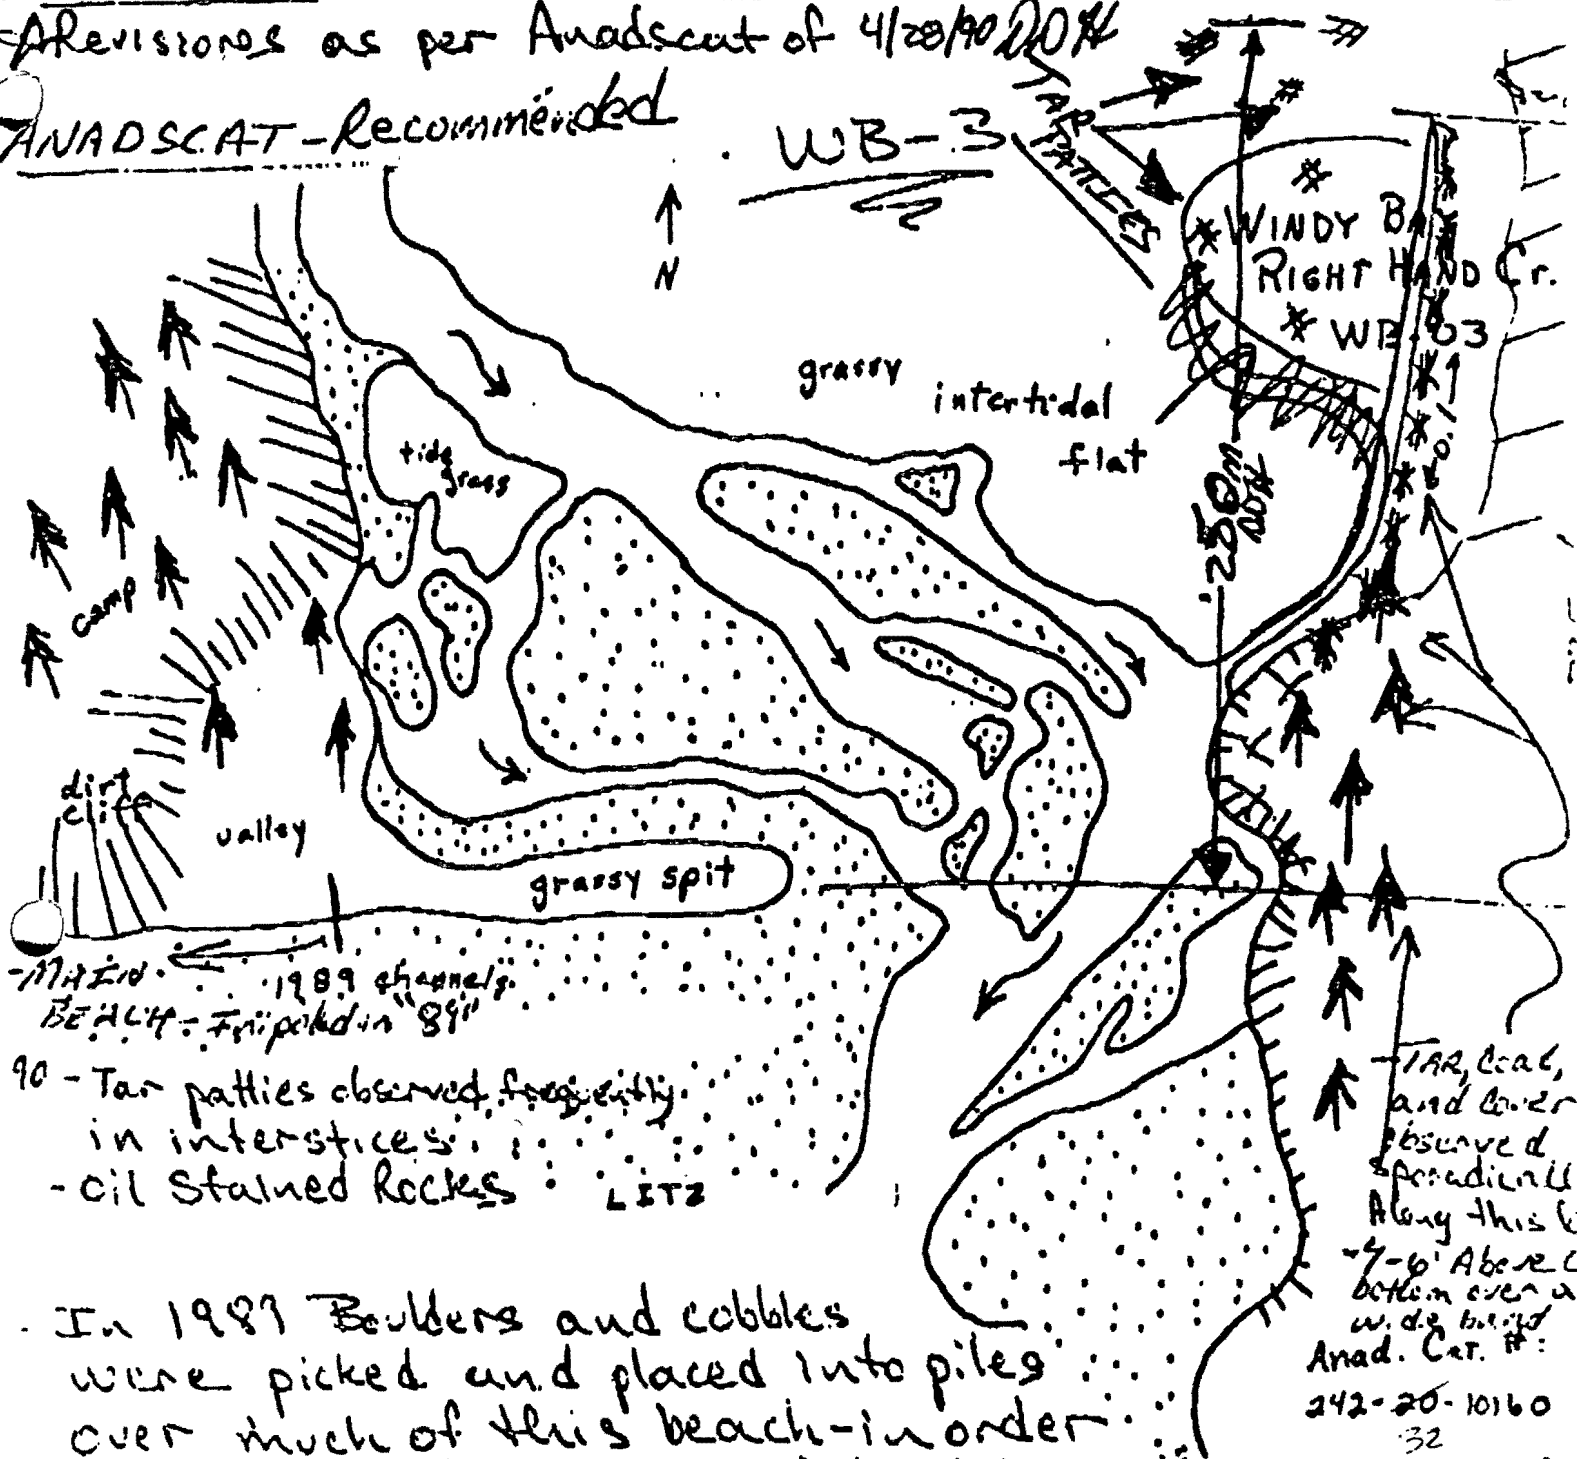 Revisions as per Anadscat of 4/28/90 DOH
ANADSCAT-Recommended
WB-3
TAR
PATTIES
WINDY BAY
RIGHT HAND Cr.
WB-03
N
grassy
intertidal
flat
tide
grass
280m
DOH
camp
dirt
cliff
valley
grassy spit
-MAIN
BEACH - in "89"
1989 channels
90 - Tar patties observed frequently
in interstices
- Oil Stained Rocks
LITZ
In 1989 Boulders and cobbles
were picked and placed into piles
over much of this beach - in order
-TAR, Coat,
and Cover
observed
Along this
Above
bottom over
wide band
Anad. Cat. #:
242-20-10160
32